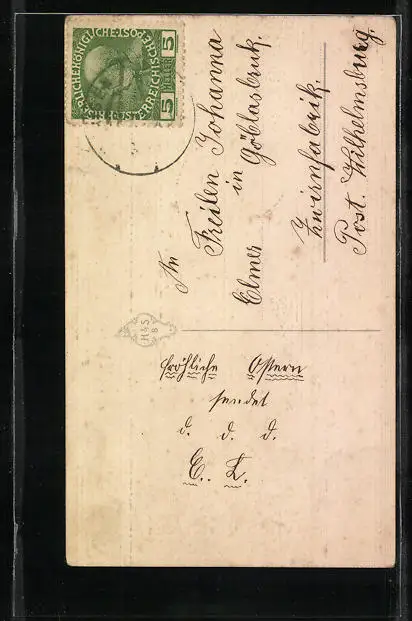 KAISERLICHE KÖNIGLICHE ÖSTERREICHISCHE POST
5 HELLER 5
An
Freilen Johanna
Elmer in Göblasbruk.
Zwirnfabrik.
Post. Wilhelmsburg.
H&S
B
fröhliche Ostern
sendet
d. d. d.